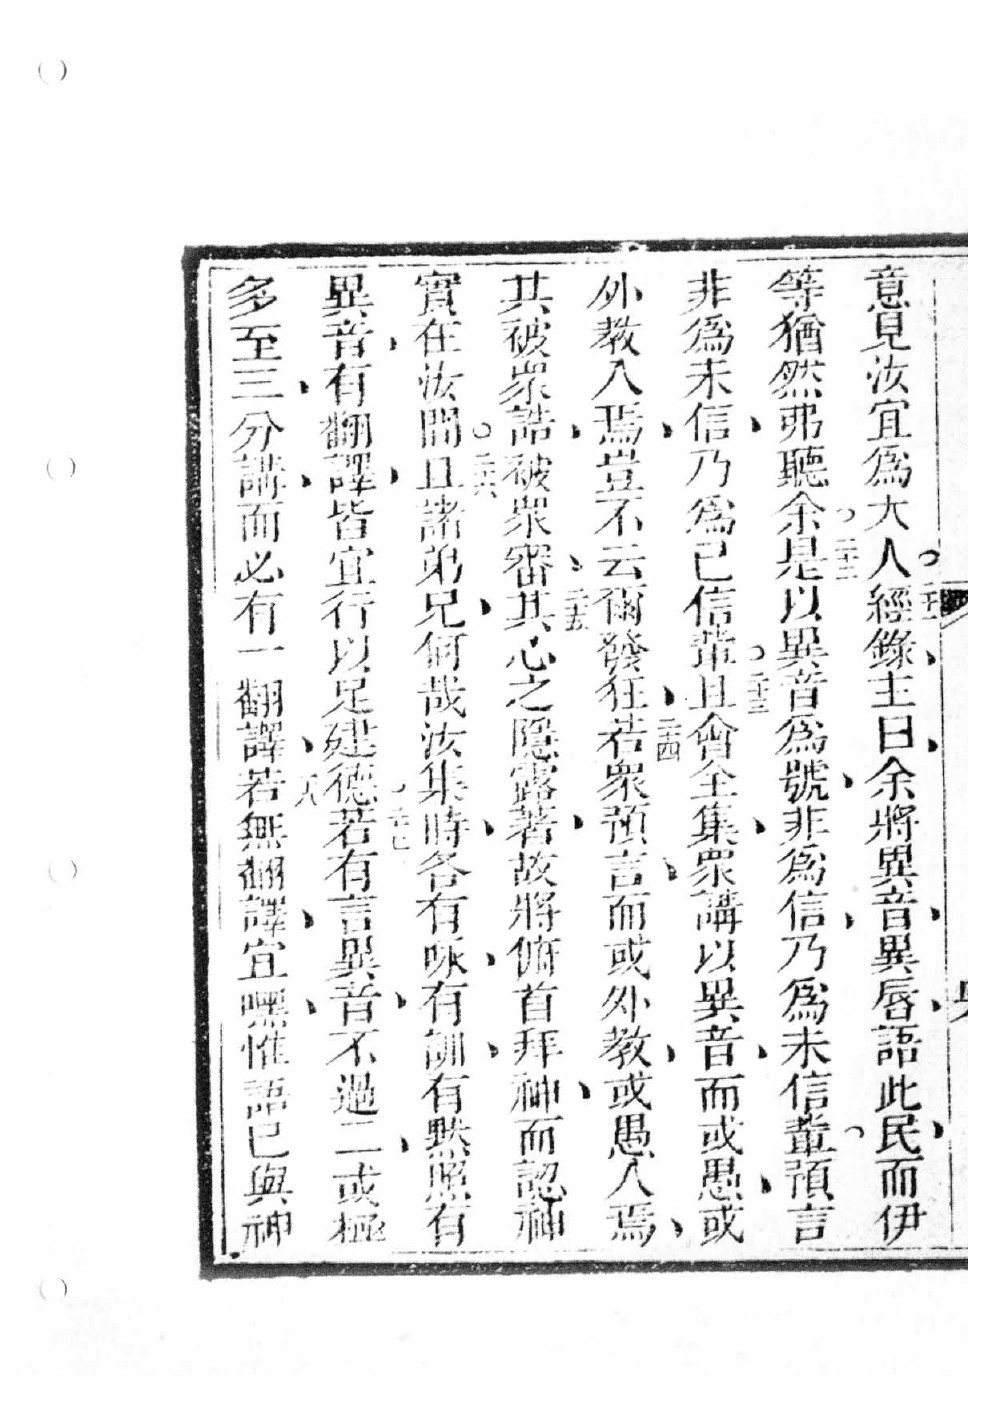 意見汝宜為大人經錄主曰余將異音異唇語此民而伊
等猶然弗聽余是以異音為號非為信乃為未信輩預言
非為未信乃為已信輩且會全集眾講以異音而或愚或
外教入焉豈不云爾發狂若眾預言而或外教或愚人焉
其被眾誥被眾審其心之隱露著故將俯首拜神而認神
實在汝間且諸弟兄何哉汝集時各有咏有訓有默照有
異音有翻譯皆宜行以足建德若有言異音不過二或極
多至三分講而必有一翻譯若無翻譯宜嘿惟語己與神
二十二
二十三
二十四
二十五
二十六
二十七
二八